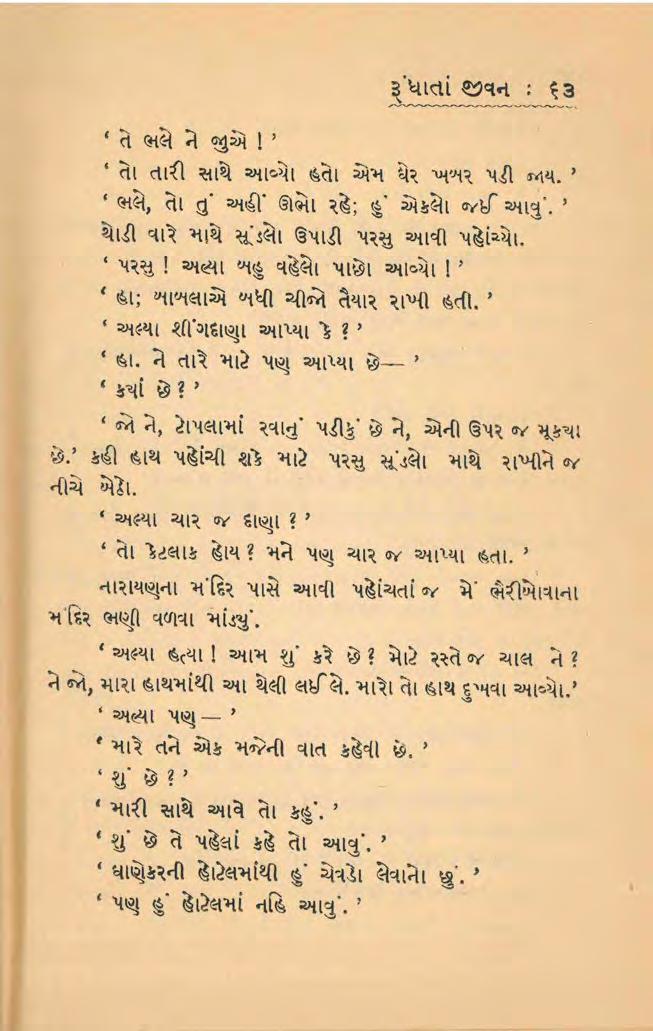 રૂંધાતાં જીવન : ૬૩
‘ તે ભલે ને જુએ ! ’
‘ તો તારી સાથે આવ્યો હતો એમ ઘેર ખબર પડી જાય. ’
‘ ભલે, તો તું અહીં ઊભો રહે; હું એકલો જઈ આવું. ’
થોડી વારે માથે સૂંડલો ઉપાડી પરસુ આવી પહોંચ્યો.
‘ પરસુ ! અલ્યા બહુ વહેલો પાછો આવ્યો ! ’
‘ હા; બાબલાએ બધી ચીજો તૈયાર રાખી હતી. ’
‘ અલ્યા શીંગદાણા આપ્યા કે ? ’
‘ હા. ને તારે માટે પણ આપ્યા છે— ’
‘ ક્યાં છે ? ’
‘ જો ને, ટોપલામાં રવાનું પડીકું છે ને, એની ઉપર જ મૂક્યા
છે.’ કહી હાથ પહોંચી શકે માટે પરસુ સૂંડલો માથે રાખીને જ
નીચે બેઠો.
‘ અલ્યા ચાર જ દાણા ? ’
‘ તો કેટલાક હોય ? મને પણ ચાર જ આપ્યા હતા. ’
નારાયણના મંદિર પાસે આવી પહોંચતાં જ મેં ભૈરીબોવાના
મંદિર ભણી વળવા માંડ્યું.
‘ અલ્યા હત્યા ! આમ શું કરે છે ? મોટે રસ્તે જ ચાલ ને ?
ને જો, મારા હાથમાંથી આ થેલી લઈ લે. મારો તો હાથ દુખવા આવ્યો.’
‘ અલ્યા પણ — ’
‘ મારે તને એક મજેની વાત કહેવી છે. ’
‘ શું છે ? ’
‘ મારી સાથે આવે તો કહું. ’
‘ શું છે તે પહેલાં કહે તો આવું. ’
‘ ઘાણેકરની હોટેલમાંથી હું ચેવડો લેવાનો છું. ’
‘ પણ હું હોટેલમાં નહિ આવું. ’